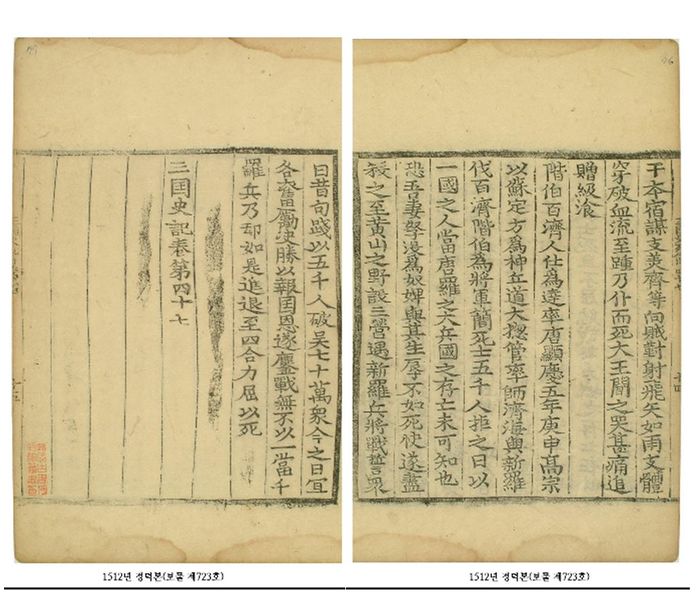 干夲宿謀支美齊等向賊對射飛矢如雨支體
穿破血流至踵乃仆而死大王聞之哭甚痛追
贈級飡
階伯百濟人仕爲達率唐顯慶五年庚申髙宗
以蘇定方爲神丘道大摠管率師濟海與新羅
伐百濟階伯為將軍蕳死士五千人拒之曰以
一國之人當唐羅之大兵國之存亡未可知也
恐吾妻孥没爲奴婢與其生辱不如死快遂盡
殺之至黄山之野設三營遇新羅兵將戰誓衆
曰昔句踐以五千人破吴七十萬衆今之日宜
各奮勵決勝以報国恩遂鏖戰無不以一當千
羅兵乃却如是進退至四合力屈以死
三国史記卷第四十七
1512년 정덕본(보물 제723호)
1512년 정덕본(보물 제723호)